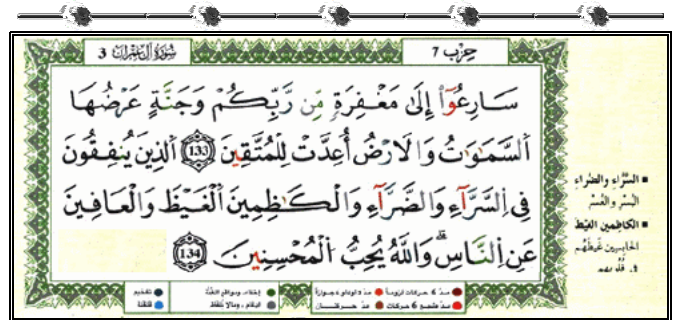 سُورَةُ آلِ عِمْرَان 3
حِزْب 7
سَارِعُوٓاْ إِلَىٰ مَغْفِرَةٍ مِّن رَّبِّكُمْ وَجَنَّةٍ عَرْضُهَا
اَ۬لسَّمَٰوَٰتُ وَالَارْضُ أُعِدَّتْ لِلْمُتَّقِينَ 133 اَ۬لذِينَ يُنفِقُونَ
فِي اِ۬لسَّرَّآءِ وَالضَّرَّآءِ وَالْكَٰظِمِينَ اَ۬لْغَيْظَ وَالْعَافِينَ
عَنِ اِ۬لنَّاسِۖ وَاللَّهُ يُحِبُّ اُ۬لْمُحْسِنِينَ 134
■ السَّرَّاءِ والضَّرَّاءِ
اليُسْرِ والعُسْرِ
■ الكَاظِمِينَ الغَيْظَ
الحابِسِينَ غَيْظَهُم
في قُلُوبِهِم
مدّ 6 حركات لزوماً
مدّ 2 أو 4 أو 6 جوازاً
مدّ مشبع 6 حركات
مدّ حركتان
إخفاء، ومواقع الغنّة
إدغام، وما لا يُلفظ
تفخيم
قلقلة